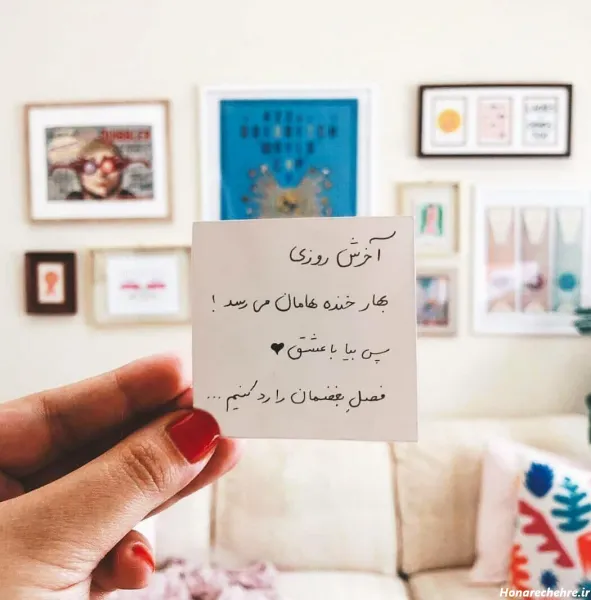 آخرش روزی
بهار خنده هامان می رسد !
پس بیا با عشق ♥
فصلِ بغضمان را رد کنیم ...
Honarechehre.ir